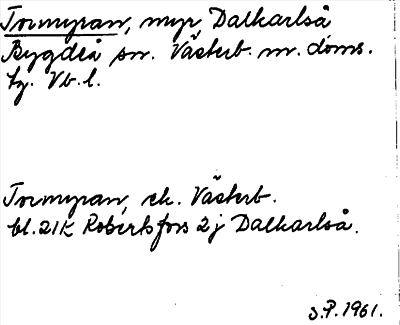 Tormyran, myr, Dalkarlså
Bygdeå sn. Västerb. m. doms.
tg. Vb. l.
Tormyran, ek. Västerb.
bl. 21K Robertsfors 2j Dalkarlså.
S.P. 1961.